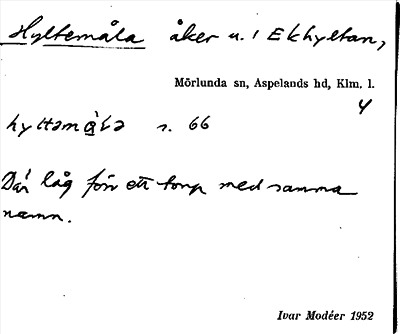 Hyltemåla åker u. i Ekhyltan,
Mörlunda sn, Aspelands hd, Klm. l.
4
s. 66
Där låg förr ett torp med samma
namn.
Ivar Modéer 1952